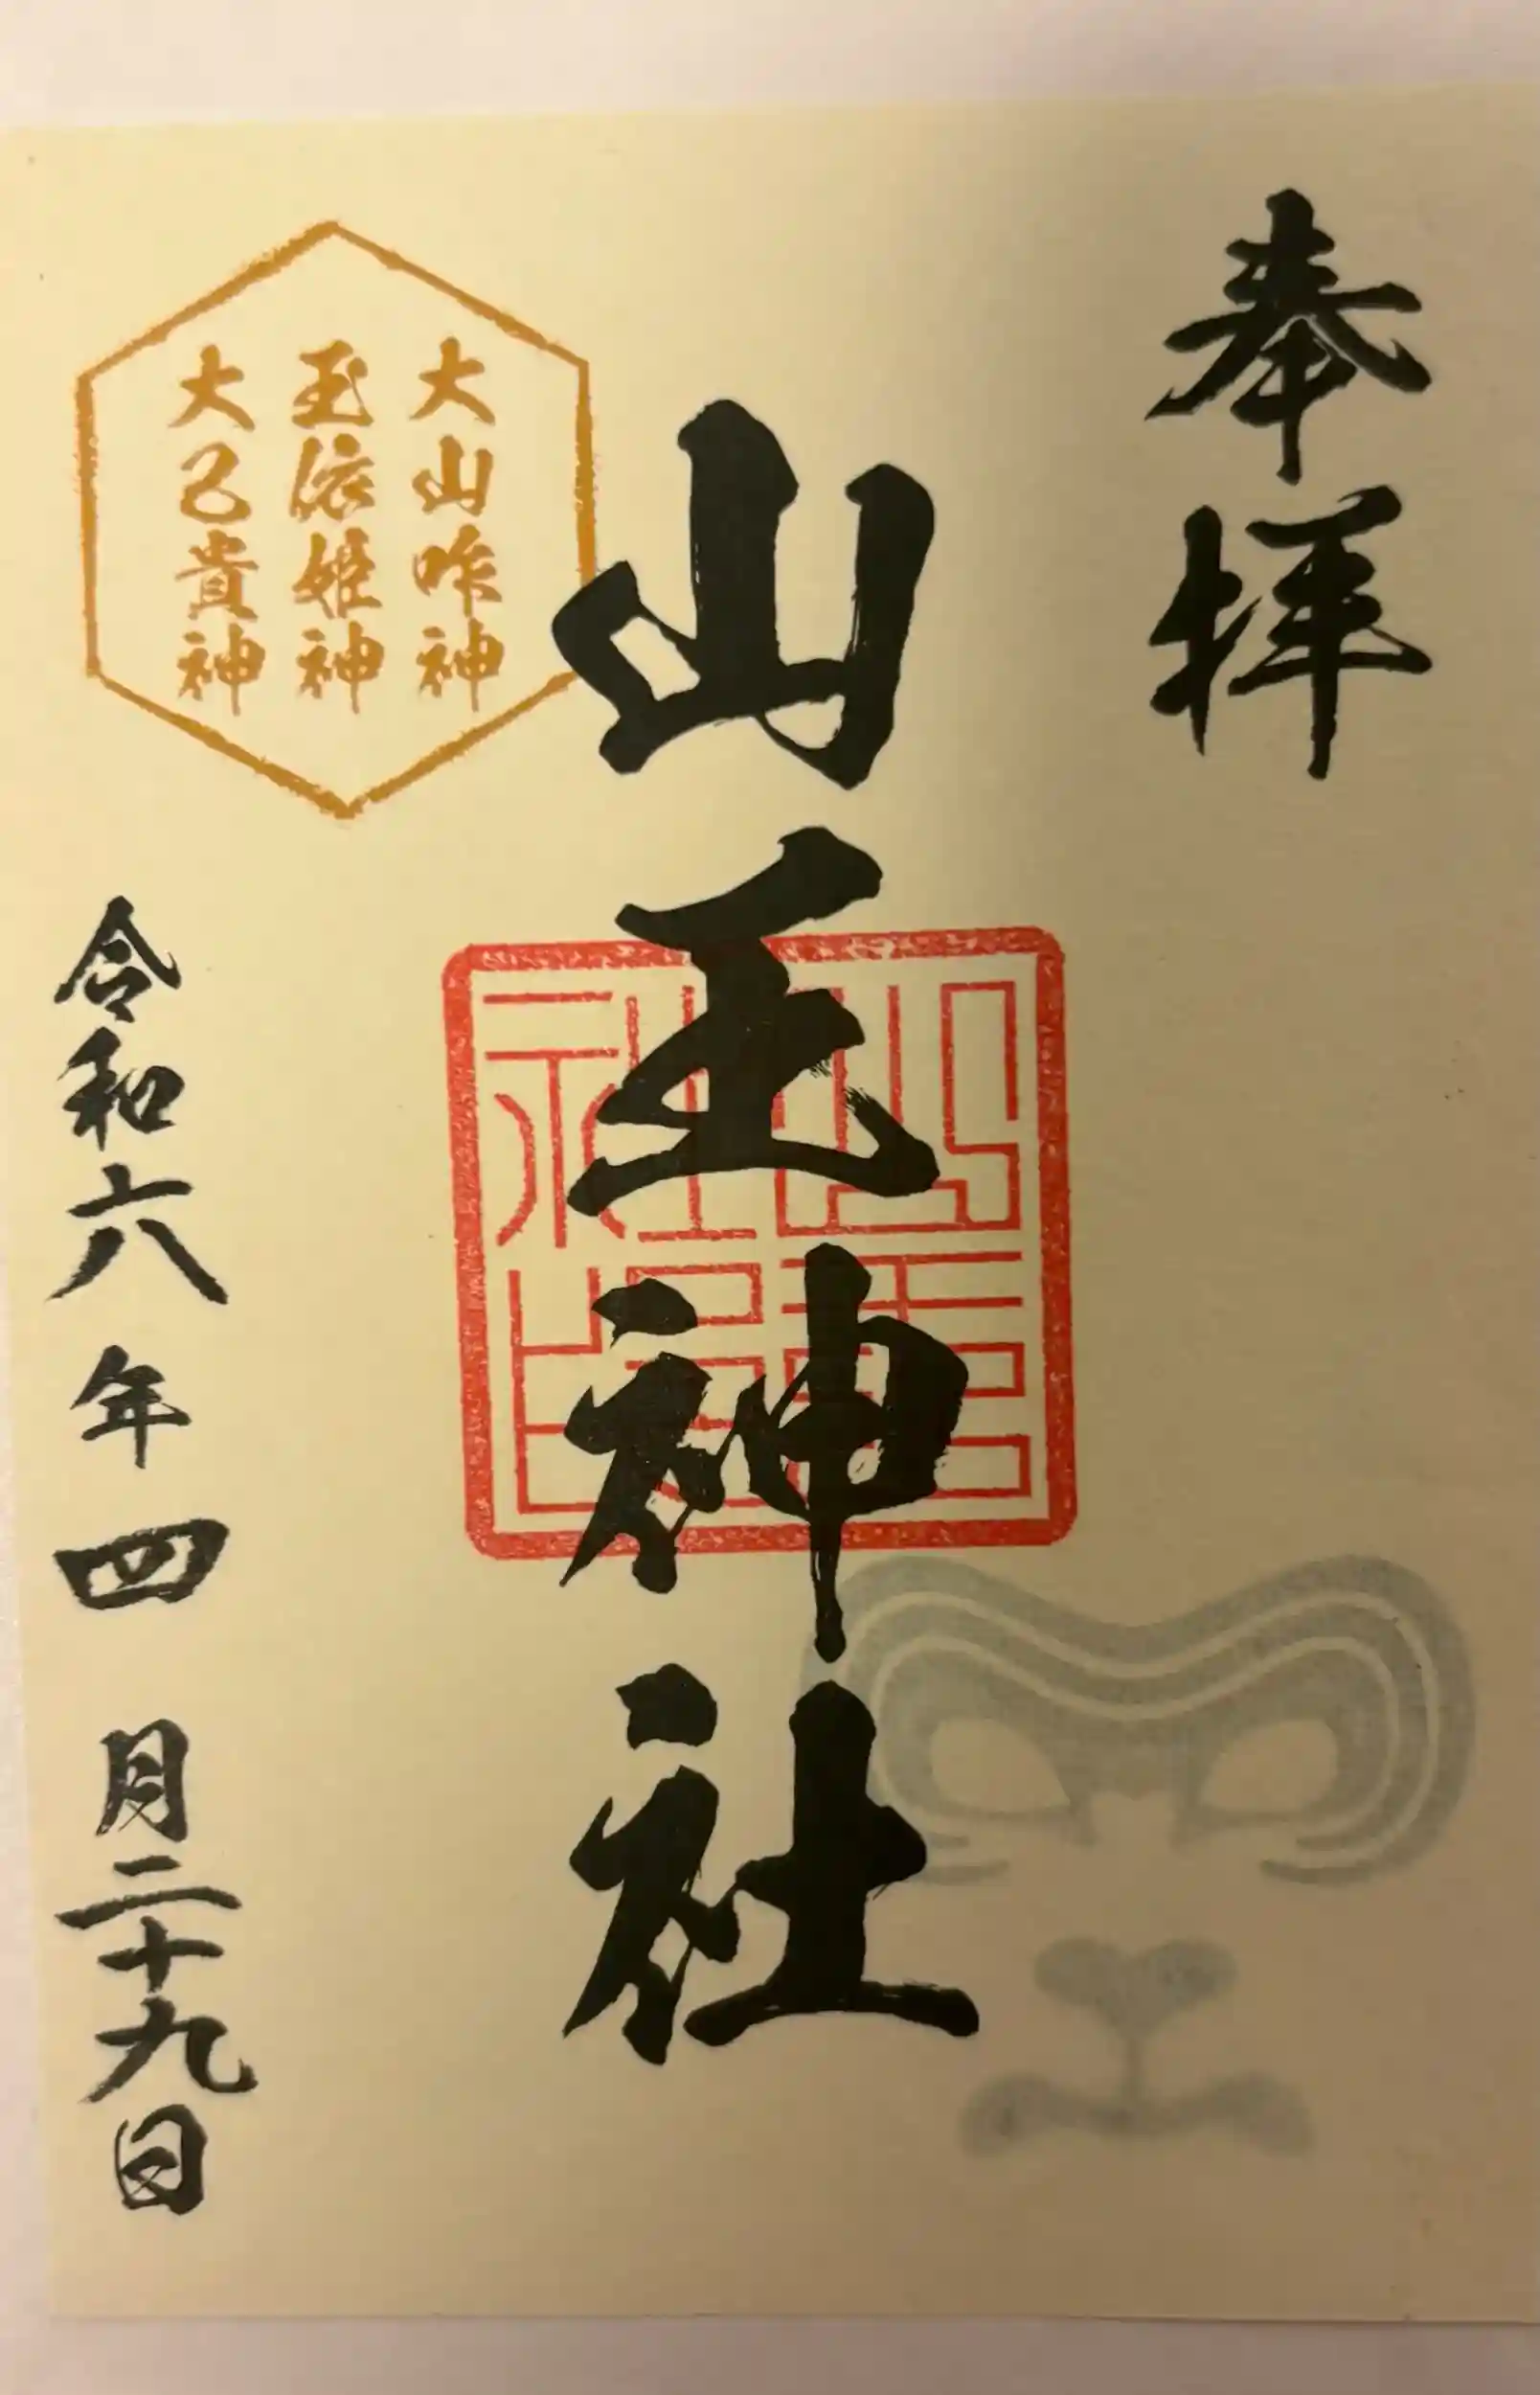 奉拝
山王神社
山王神社印
大山咋神
玉依姫神
大己貴神
令和六年四月二十九日